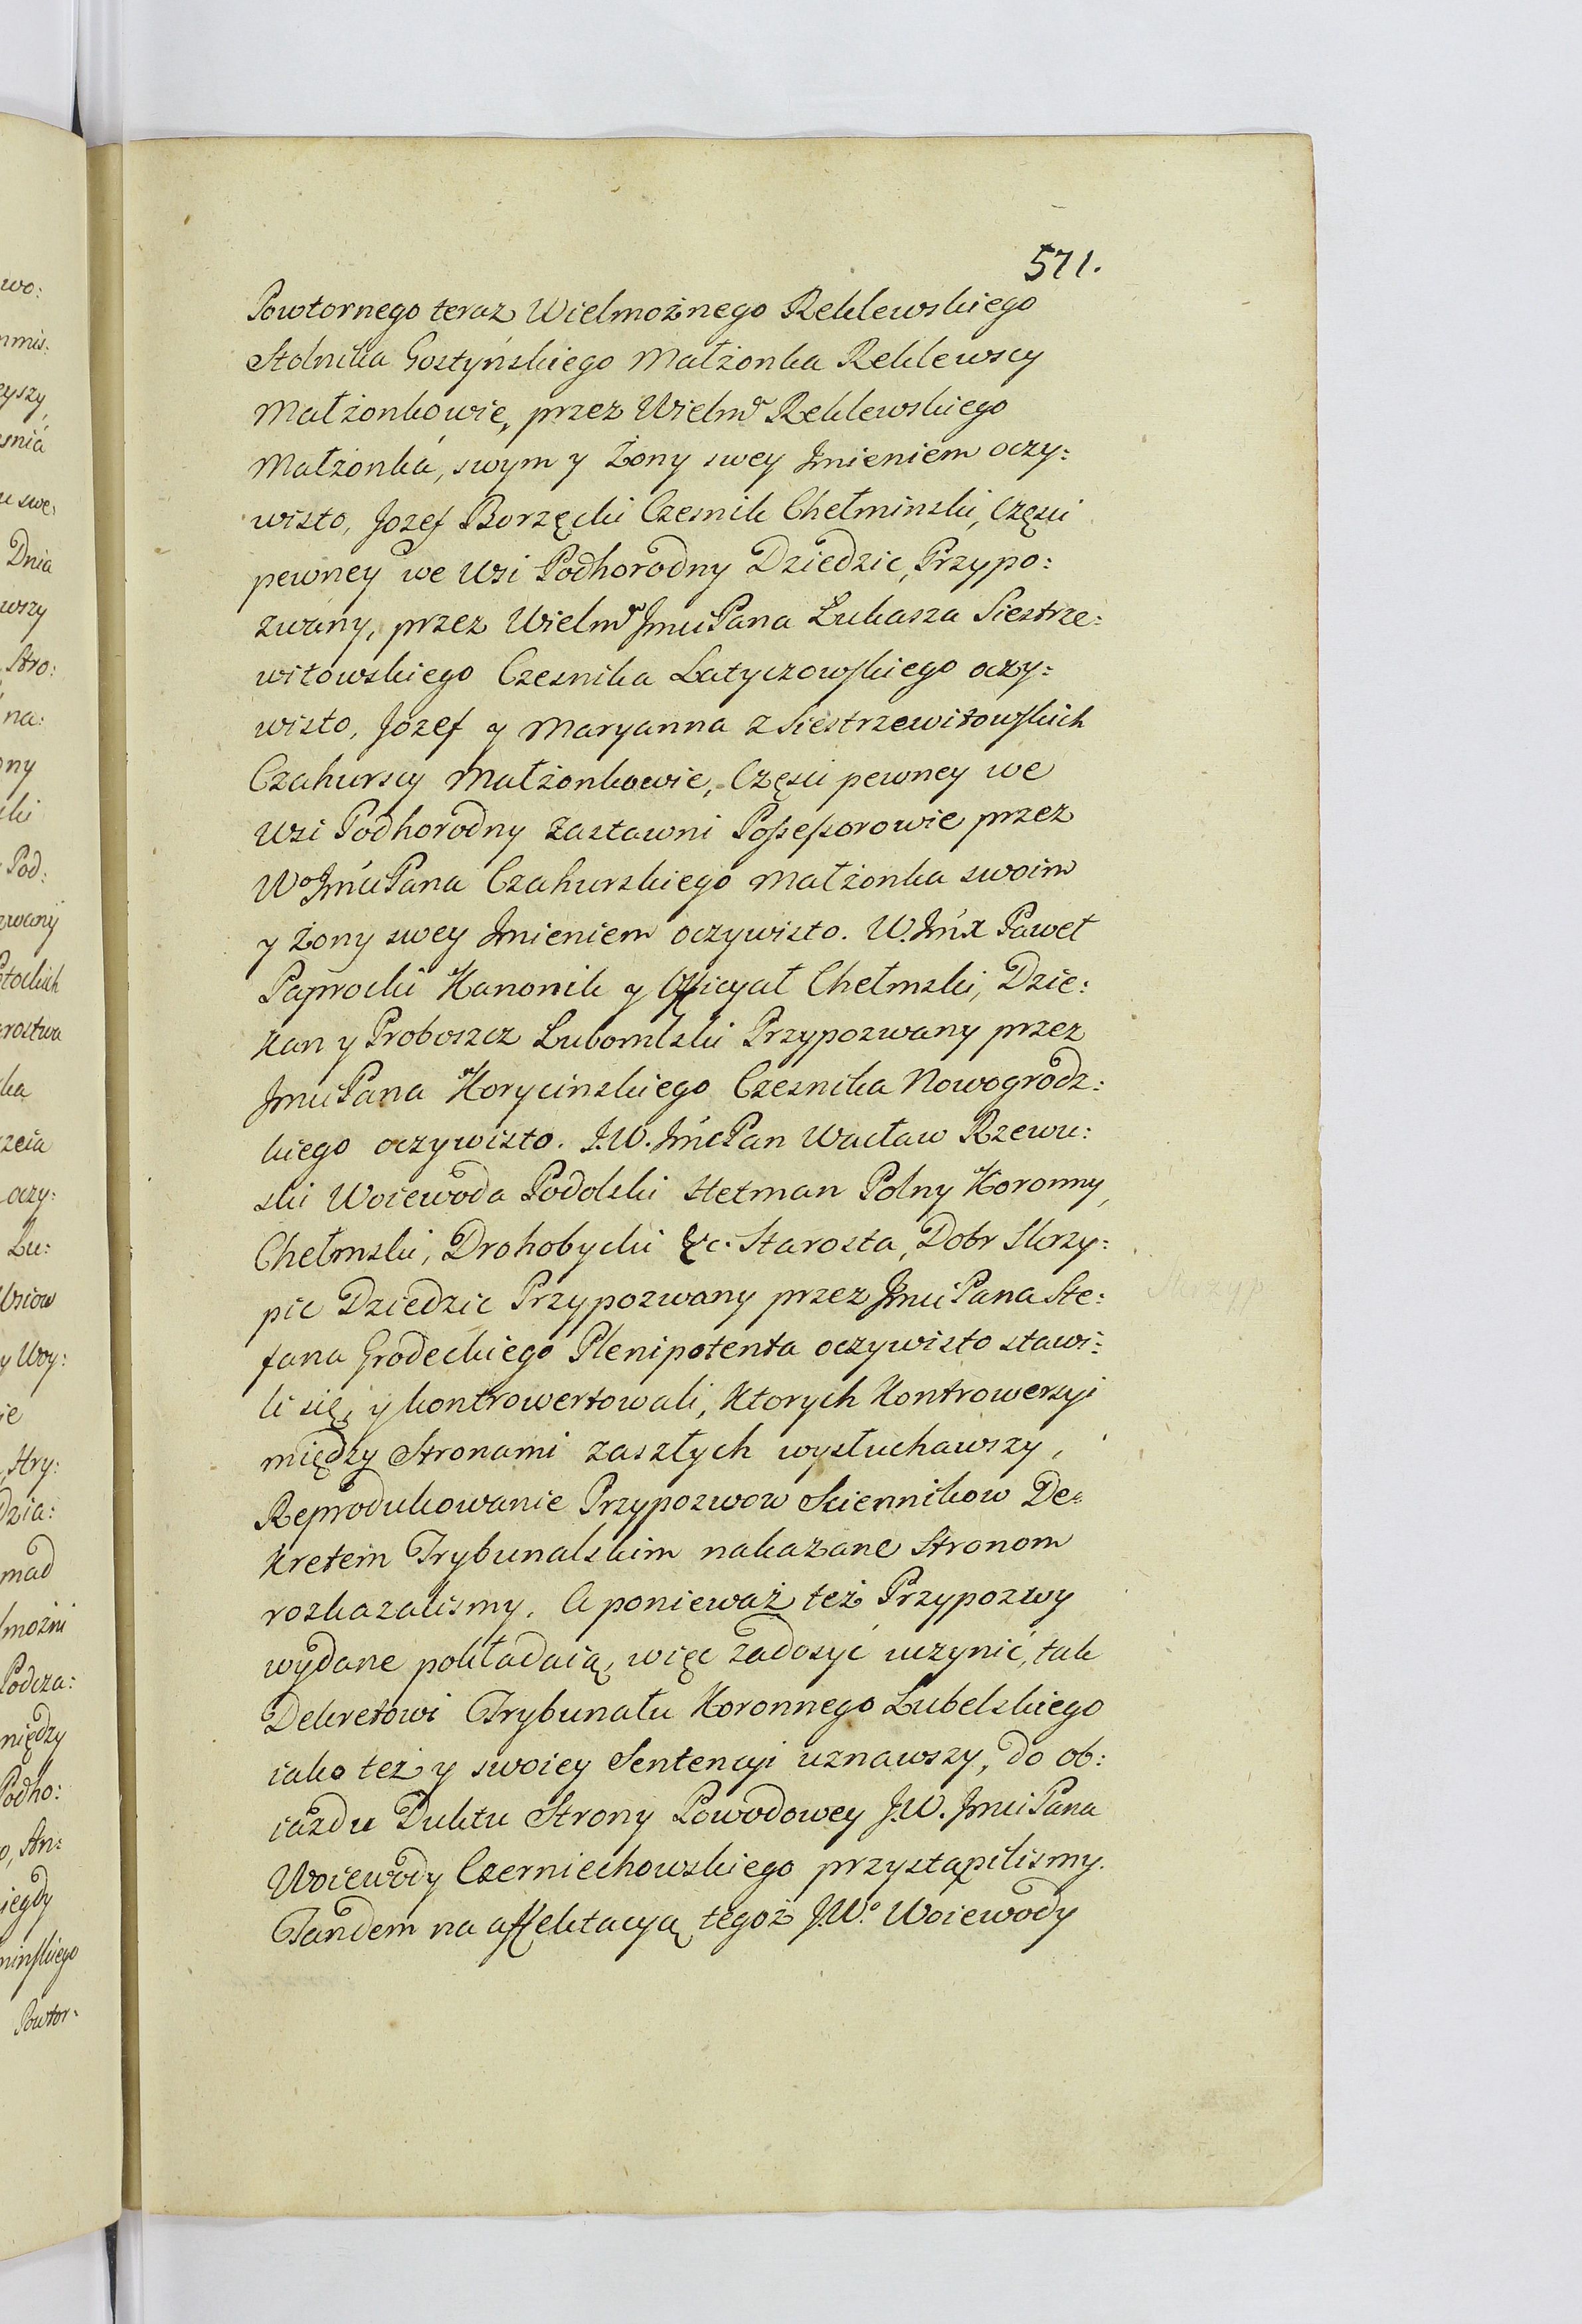 571.
Powtornego teraz Wielmożnego Reklewskiego
Stolnika Gostyńskiego Małżonka Reklewscy
Małżonkowie, przez Wielmo Reklewskiego
Małżonka, swym y Żony swey Jmieniem oczy:
wisto, Jozef Borzęcki Czesnik Chełminski, Częsci
pewney we Wsi Podhorodny Dziedzic, Przypo:
zwany, przez Wielmo JmciPana Łukasza Siestrze:
witowskiego Czesnika Latyczowskiego oczy:
wisto, Jozef y Maryanna z Siestrzewitowskich
Czahurscy Małżonkowie, Częsci pewney we
Wsi Podhorodny zastawni Possessorowie przez
Wo JmciPana Czahurskiego Małżonka swoim
y Żony swey Jmieniem oczywisto. W. Jmć X Paweł
Paprocki Kanonik y Officyał Chełmski, Dzie:
kan y Proboszcz Lubomlski Przypozwany przez
JmciPana Korycinskiego Czesnika Nowogrodz:
kiego oczywisto. J.W. JmćPan Wacław Rzewu:
ski Woiewoda Podolski Hetman Polny Koronny,
Chełmski, Drohobycki &c. Starosta, Dobr Skrzy:
pic Dziedzic Przypozwany przez JmciPana Ste:
fana Grodeckiego Plenipotenta oczywisto stawi:
li się, y kontrowertowali, Ktorych Kontrowersyi
między Stronami zaszłych wysłuchawszy,
Reprodukowanie Przypozwow Sciennikow De:
kretem Trybunalskim nakazane Stronom
rozkazalismy. A ponieważ też Przypozwy
wydane pokładaią, więc zadosyć uczynić, tak
Dekretowi Trybunału Koronnego Lubelskiego
iako też y swoiey Sentencyi uznawszy, do ob:
iazdu Duktu Strony Powodowey J.W. JmciPana
Woiewody Czerniechowskiego przystąpilismy.
Tandem na affektacyą tegoż J.Wo Woiewody